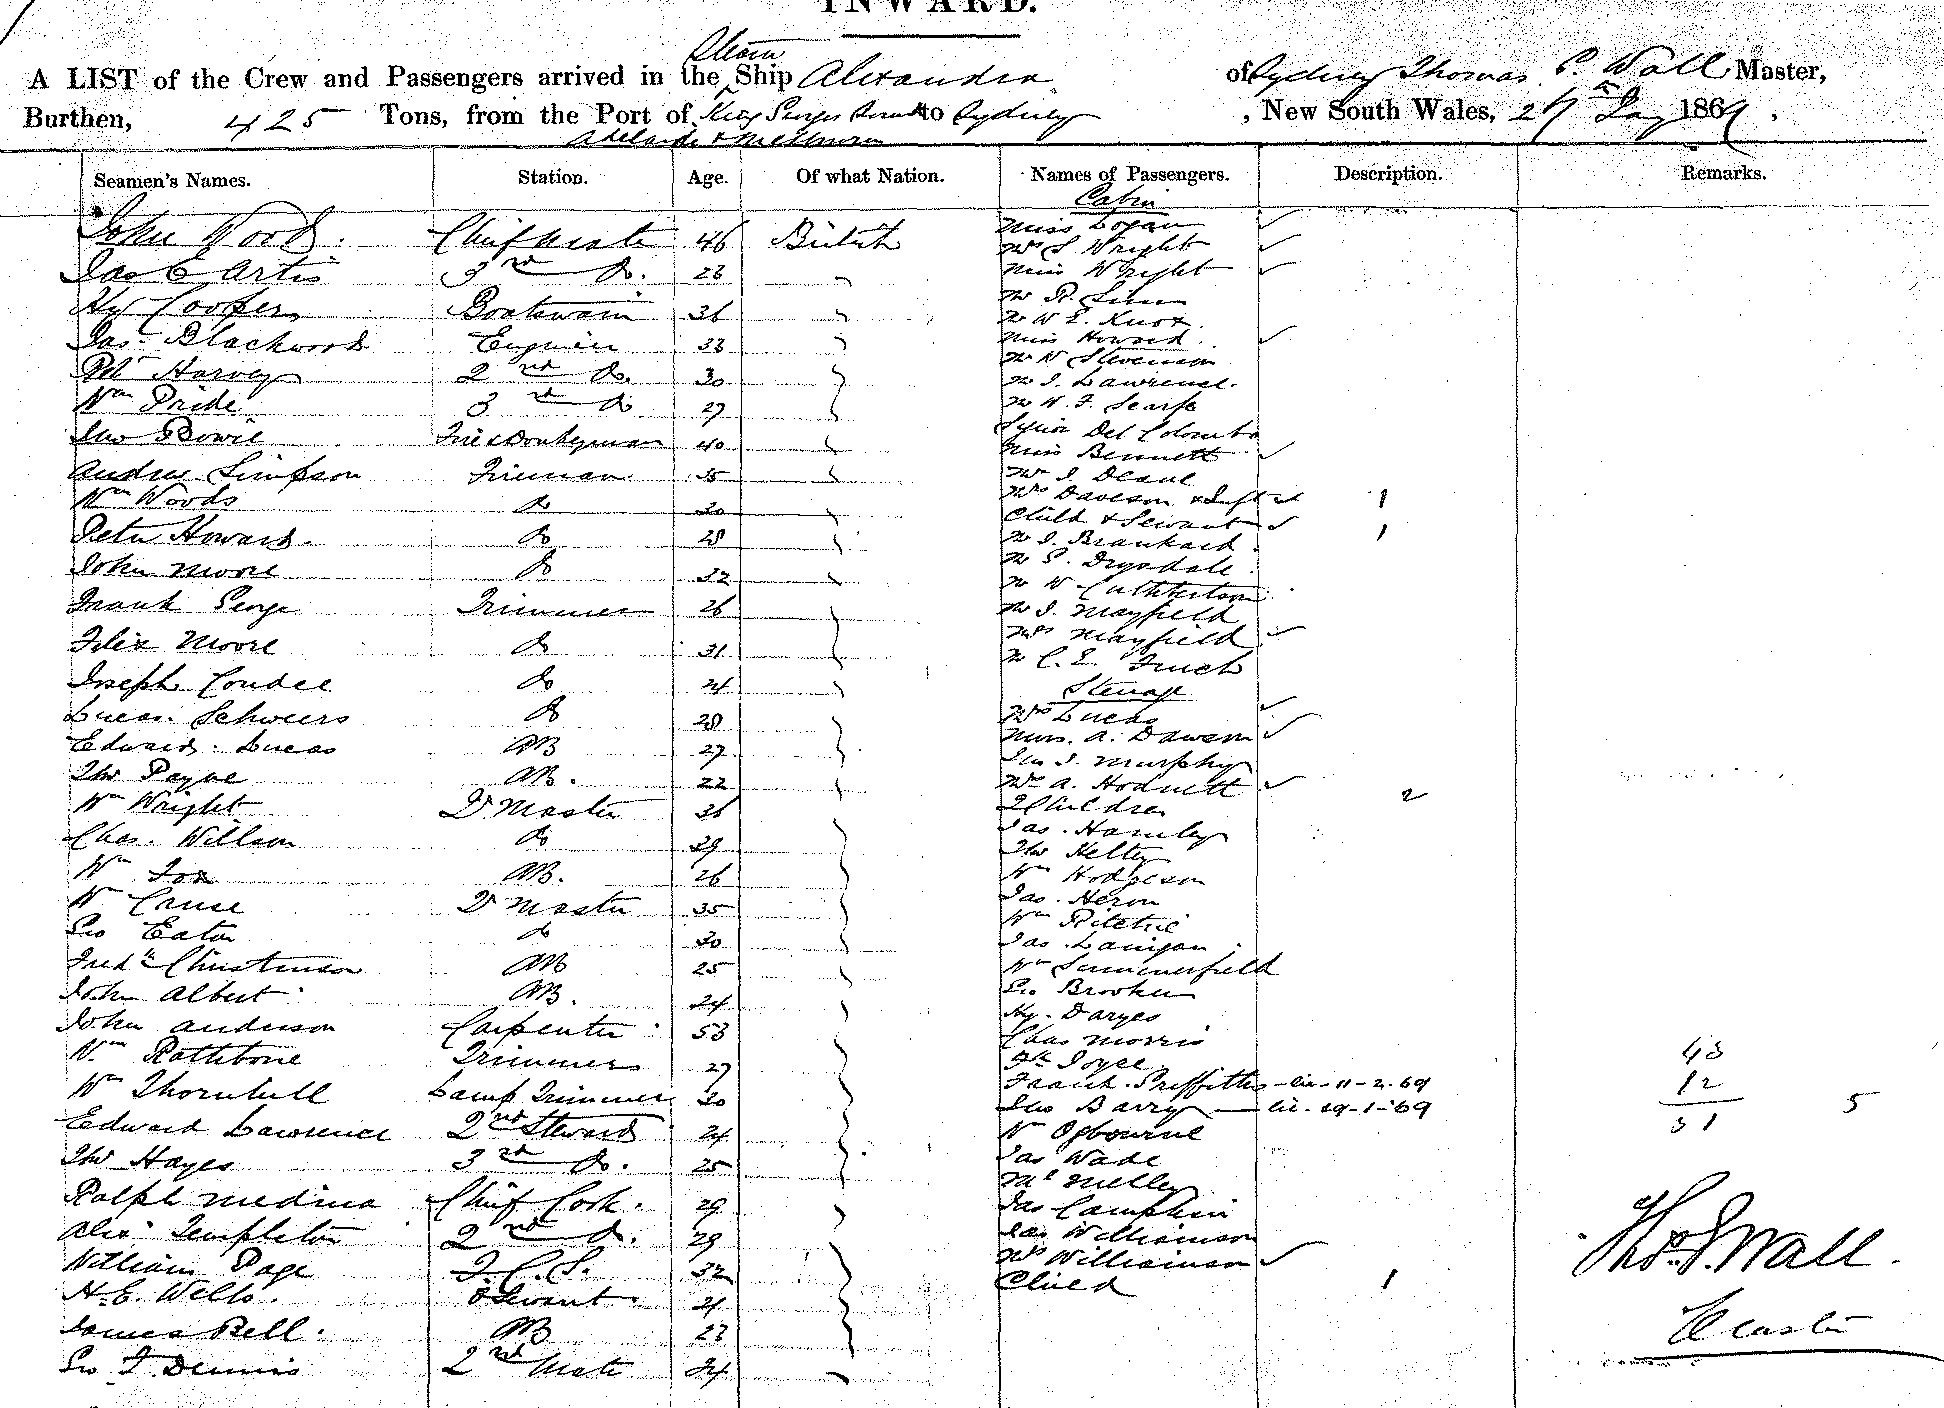 INWARD.
A LIST of the Crew and Passengers arrived in the Steam Ship Alexandra of Sydney Thomas S. Wall Master,
Burthen, 425 Tons, from the Port of King Georges Sound to Sydney, New South Wales, 186
Adelaide & Melbourne
Seamen's Names. Station. Age. Of what Nation. Names of Passengers. Description. Remarks.
Cabin
John Wood. Chief Mate 46 British Miss Logan
Mrs S Wright
Jas C Artis 3rd Do. Miss Wright
Hy Cooper Boatswain 36
Mr W E. Knox
Jas. Blackwood Engineer 33 Miss Howard
Mr W Stevenson
Harvey 2nd Do. 30 Mr J. Lawrence.
Wm Pride 3rd Do 27 Mr W. F. Scarfe
Jno Bowie Fire & Donkeyman 40 Del Colombo
Miss Bennett
Andrew Simpson Fireman 35 Mr J. Deane
Wm Woods Do 30 Mrs Daveson & Inft 1
Child & Servant 1
Peter Howard. Do 28 Mr J.
John Moore Do 32 Mr G. Drysdale
Mr W Cuthbertson
Frank George Trimmer 26 Mr J. Mayfield
Mrs Mayfield
Felix Moore Do 31 Mr C. E.
Joseph Condee Do 24 Steerage
Lucas Schweers Do 28 Mrs Lucas
Miss. A. Dawson
Edward. Lucas AB 27 Jno J. Murphy
Tho Payne AB. 22 Mrs A. Hodnett
Wm Wright Qr Master 36 2 Children 2
Jas. Hamley
Chas. Willson Do 29 Tho Kelter
Wm Fox AB. 26 Wm Hodgeson
W Cruse Qr Master 35 Jas. Heron
Wm Ritchie
Geo Eaton Do 30 Jas. Lanigan
Fredk Christenson AB 25 Wm Summerfield
John Albert AB. 24 Geo Brooker
Hy. Daryes
John Anderson Carpenter 53 Chas Morris
Wm Rathbone Trimmer 27 Joyce 43
Wm Thornhill Lamp Trimmer 20 Frank. Griffiths - lic. 11-2-69 12
Jno Barry - lic. 19-1-69 5
Edward Lawrence 2nd Steward 24 W Ogbourne 31
Tho Hayes 3rd Do. 25 Jas Wade
Ralph Medina Chief Cook. 29 Jas Campkin
Alexr Templeton 2nd Do. 29 Jas Williamson
William Page F. C. S. 32 Mrs Williamson
H. E. Wells. Servant 21 Child 1
James Bell. AB 23
Geo T Dennis 2nd Mate 24
Thos. S. Wall.
Master